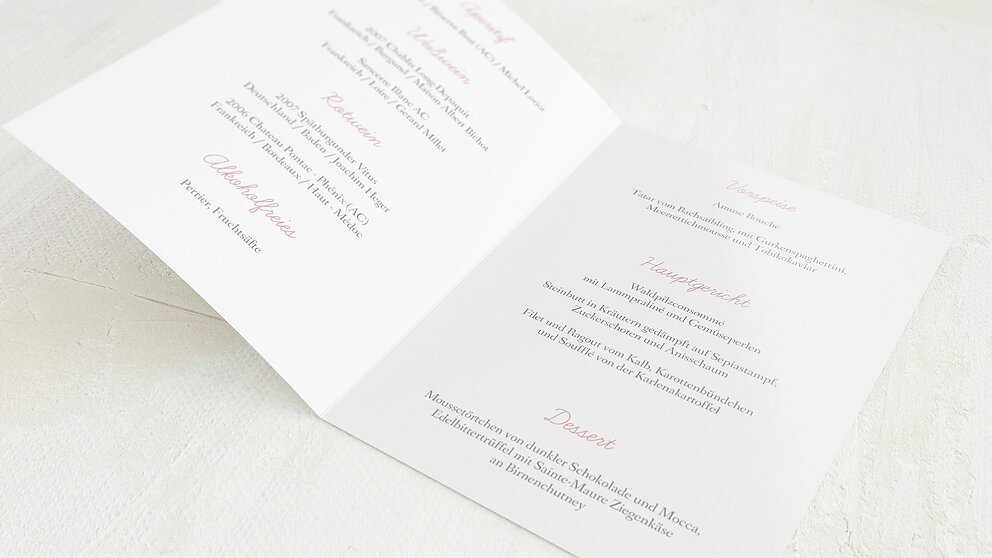 Aperitif
Reserve Brut (AC) / Michel Loriot
Weißwein
2007 Chablis Long Depaquit
Frankreich / Burgund / Maison Albert Bichot
Sancerre Blanc AC
Frankreich / Loire / Gerard Millet
Rotwein
2007 Spätburgunder Vitus
Deutschland / Baden / Joachim Heger
2006 Chateau Pontac - Phénix (AC)
Frankreich / Bordeaux / Haut - Médoc
Alkoholfreies
Perrier, Fruchtsäfte
Vorspeise
Amuse Bouche
Tatar vom Bachsaibling, mit Gurkenspaghettini,
Meerrettichmousse und Tobikokaviar
Hauptgericht
Waldpilzconsommé
mit Lammpraliné und Gemüseperlen
Steinbutt in Kräutern gedämpft auf Sepiastampf,
Zuckerschoten und Anisschaum
Filet und Ragout vom Kalb, Karottenbündchen
und Soufflé von der Karlenakartoffel
Dessert
Moussetörtchen von dunkler Schokolade und Mocca,
Edelbittertrüffel mit Sainte-Maure Ziegenkäse
an Birnenchutney